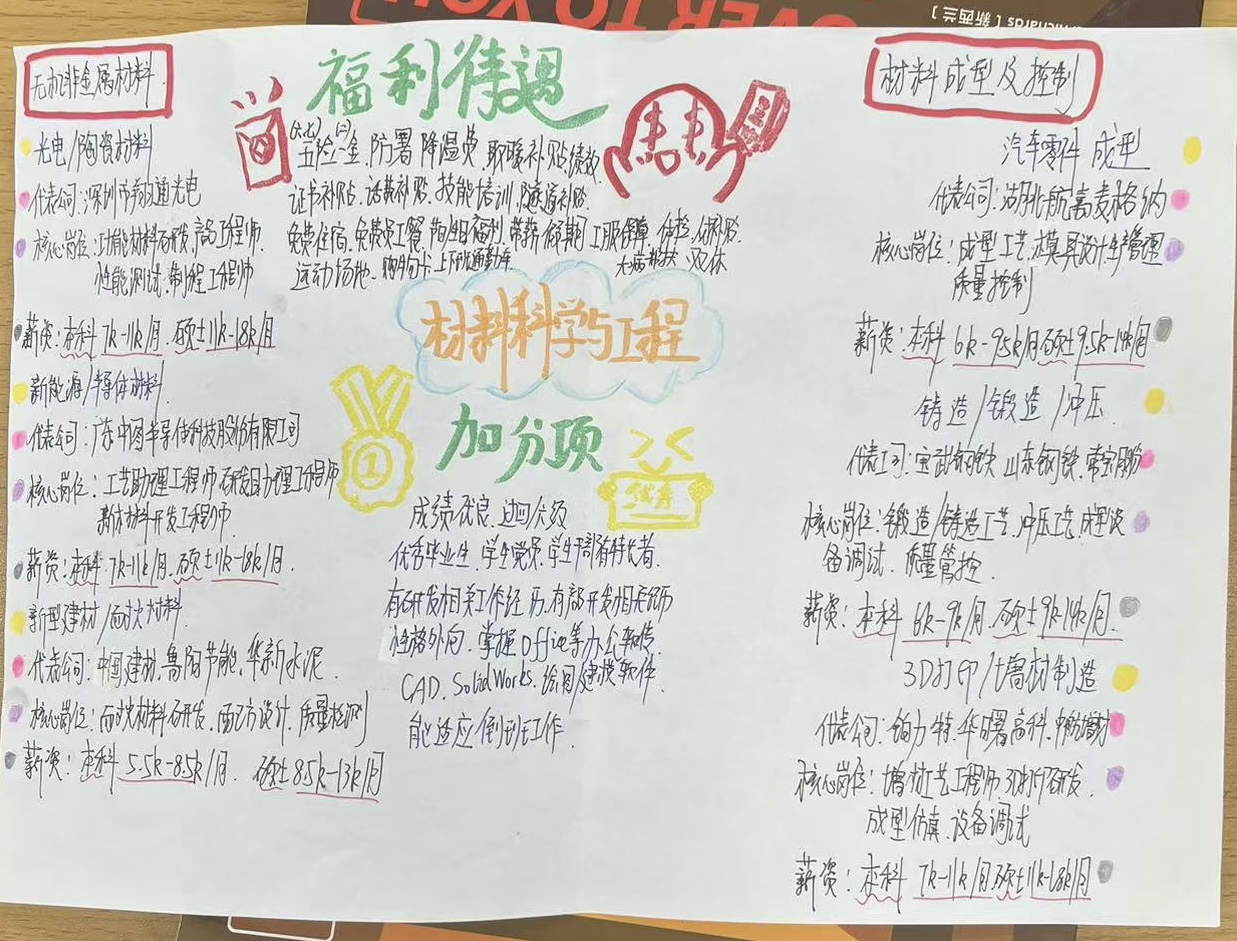 OVER TO YOU
ichards [新西兰]
无机非金属材料
光电/陶瓷材料
代表公司:深圳市翔通光电
核心岗位:功能材料研发,高级工程师,
性能测试、制程工程师
薪资:本科 7k-11k/月、硕士11k-18k/月
新能源/半导体材料
代表公司:广东中图半导体科技股份有限公司
核心岗位:工艺助理工程师、研发助理工程师
新材料开发工程师
薪资:本科 7k-11k/月、硕士11k-18k/月.
新型建材/耐火材料
代表公司:中国建材、鲁阳节能、华新水泥
核心岗位:耐火材料研发、配方设计、质量检测
薪资:本科 5.5k-8.5k/月. 硕士 8.5k-13k/月
福利待遇
(六、七) (二)
五险一金、防暑降温费、取暖补贴绩效、
证书补贴、话费补贴、技能培训、隧道补贴.
免费住宿、免费员工餐、 生日福利、带薪假期、工服保障、体检、
运动场地、购物卡、上下班通勤车、大病帮扶、双休
材料科学与工程
加分项
①
优秀
成绩优良、过四六级
优秀毕业生、学生党员、学生干部有特长者
有研发相关工作经历、有 开发相关经历
性格外向、掌握office等办公软件、
CAD、SolidWorks、绘图/建模软件、
能适应倒班工作.
材料成型及控制
汽车零件成型
代表公司:湖北航嘉麦格纳
核心岗位:成型工艺、模具设计生产管理
质量控制
薪资:本科 6k-9.5k/月 硕士9.5k-14k/月
铸造/锻造/冲压
代表公司:宝武钢铁、山东钢铁、常宝股份
核心岗位:锻造/铸造工艺、冲压工艺、成型设
备调试、质量管控.
薪资:本科 6k-9k/月、硕士9k-14k/月.
3D打印/增材制造
代表公司:铂力特、华曙高科、中航增材
核心岗位:增材工艺工程师、3D打印研发、
成型仿真、设备调试
薪资:本科 7k-11k/月、硕士11k-18k/月